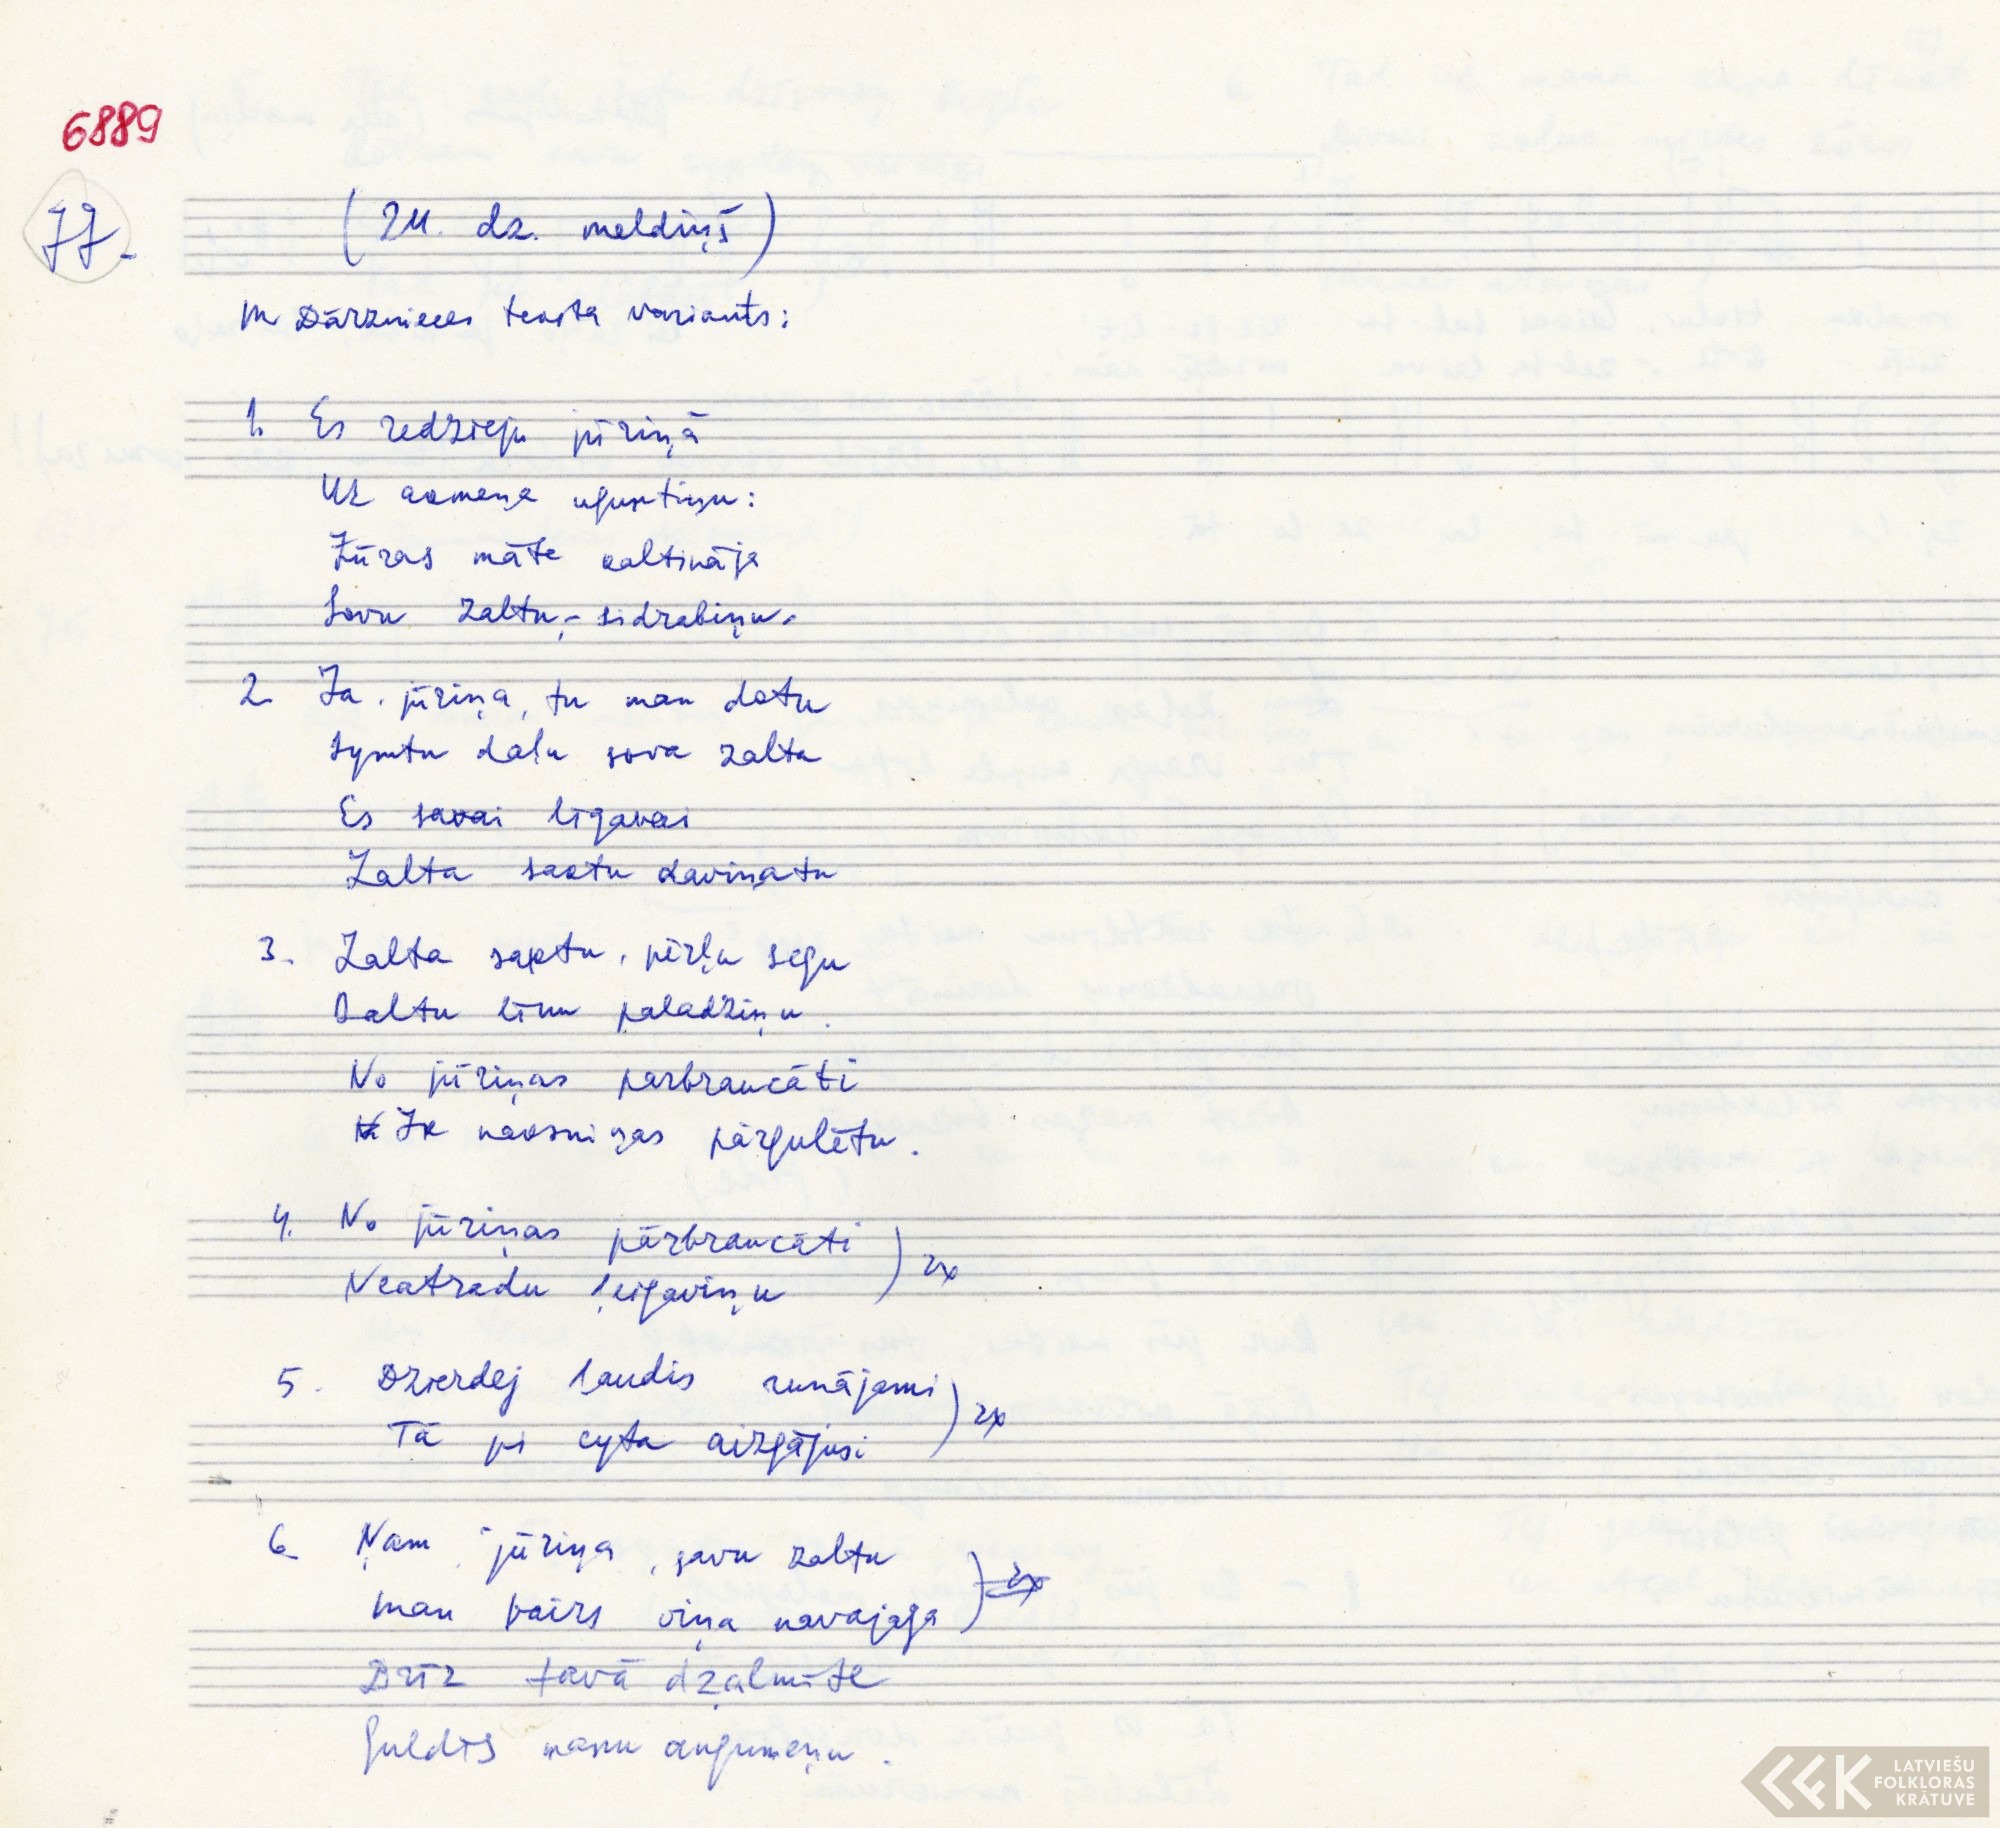 6889
77.
(24. dz. meldiņš)
M Dārznieces teksta variants:
1. Es redzieju jūriņā
Uz akmeņa uguntiņu:
Jūras māte kaltinăja
Sovu zaltu,- sidrabiņu.
2. Ja, jūriņa, tu man dotu
Symtu daļu sova zalta
Es savai līgavai
Zalta saktu daviņatu
3. Zalta saktu, pērļu segu
Baltu linu paladziņu.
No jūriņas parbraucāti
Ja naksniņas pārgulētu.
4. No jūriņas pārbraucati ) 2x
Neatradu ļeigaviņu
5. Dzierdej ļaudis runājami ) 2x
Tā pi cyta aizgājusi
6. Ņam, jūriņa, savu zaltu
man vairs viņa navajaga )
Drīz tavā dzaļmīte
Guldīs manu augumeņu.
LATVIEŠU
FOLKLORAS
KRĀTUVE